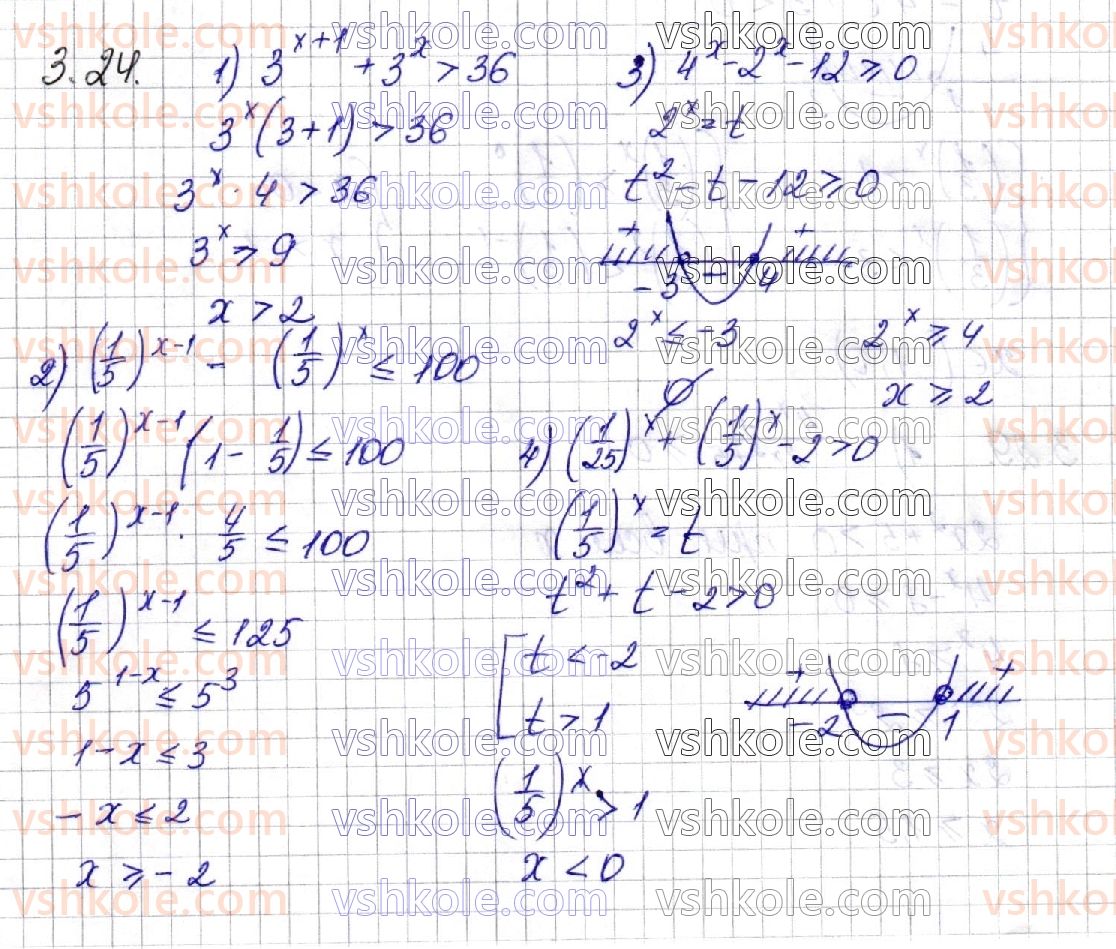 3.24.
1) 3^{x+1} + 3^x > 36
3^x(3+1) > 36
3^x · 4 > 36
3^x > 9
x > 2
2) (1/5)^{x-1} - (1/5)^x ≤ 100
(1/5)^{x-1} (1 - 1/5) ≤ 100
(1/5)^{x-1} · 4/5 ≤ 100
(1/5)^{x-1} ≤ 125
5^{1-x} ≤ 5^3
1-x ≤ 3
-x ≤ 2
x ≥ -2
3) 4^x - 2^x - 12 ≥ 0
2^x = t
t^2 - t - 12 ≥ 0
+ - +
-3 4
2^x ≤ -3 2^x ≥ 4
∅ x ≥ 2
4) (1/25)^x + (1/5)^x - 2 > 0
(1/5)^x = t
t^2 + t - 2 > 0
[ t < -2
t > 1
+ - +
-2 1
(1/5)^x > 1
x < 0
vshkole.com